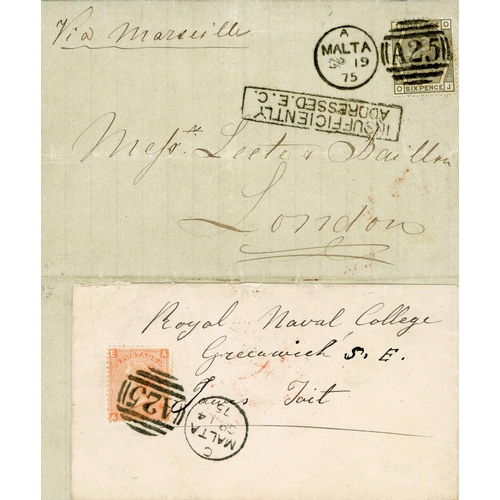 Via Marseille
A
MALTA
SP 19
75
A25
O J
SIX PENCE
INSUFFICIENTLY
ADDRESSED. E.C.
Messrs. Leeto & Baillon
London
Royal Naval College
Greenwich S. E.
James Tait
E A
POSTAGE
A25
C
MALTA
SP 14
75